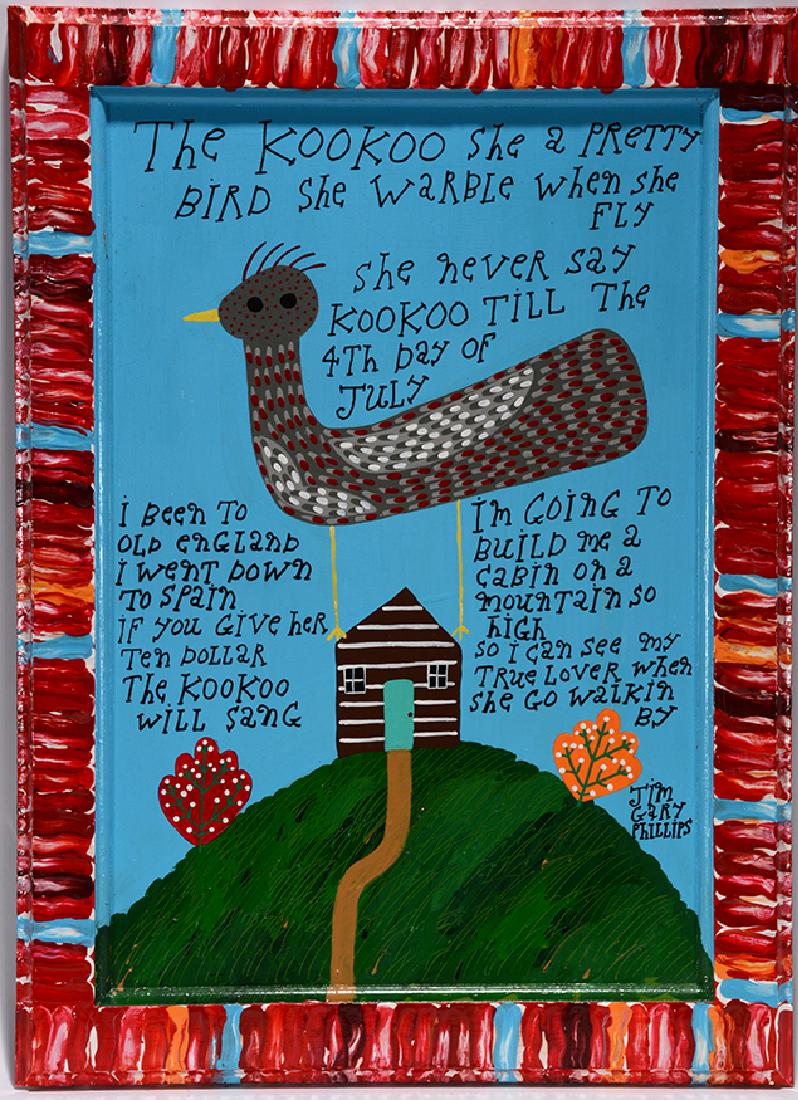 The KOOKOO She a PRETTY
BIRD She WARBLE When She
FLY
She never say
KOOKOO TILL The
4Th DAY OF
JULY
I Been TO
OLD enGLAND
I WenT DOWN
TO SPAIN
IF YOU GIVE HER
Ten DOLLAR
The KOOKOO
WILL SanG
I'm GOING TO
BUILD me a
CABIN on a
mounTain so
high
so I can see my
TRUE LOVER when
she GO WALKIN
BY
JIM
GARY
PHILLIPS